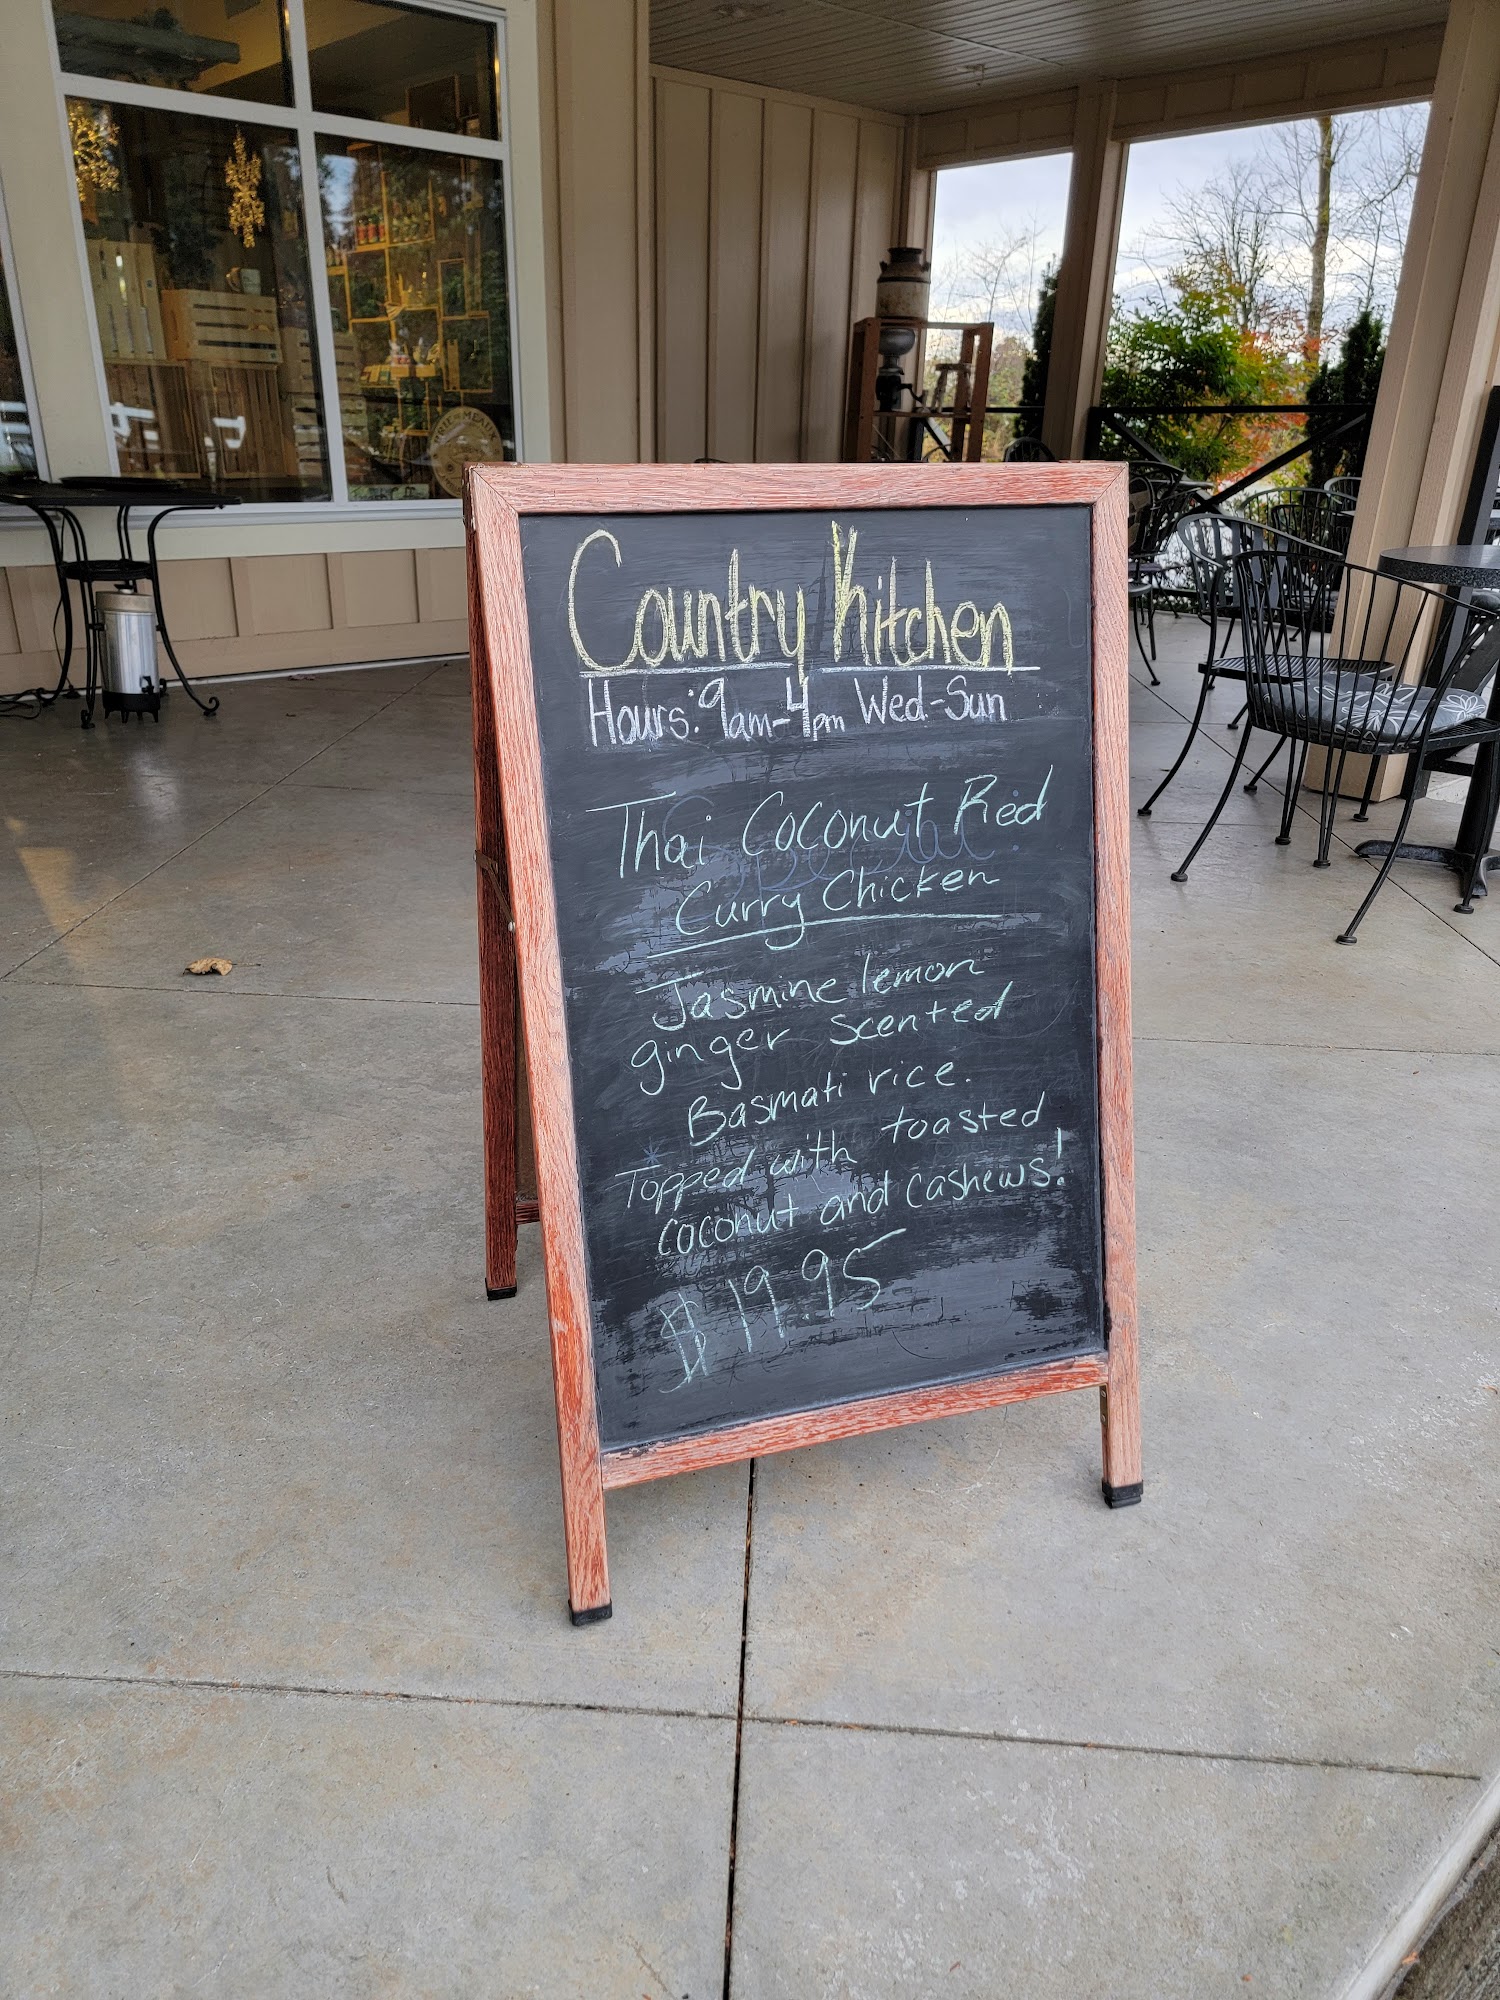 Country Kitchen
Hours: 9am-4pm Wed-Sun
Thai Coconut Red
Curry Chicken
Jasmine lemon
ginger scented
Basmati rice.
Topped with toasted
coconut and cashews!
$19.95